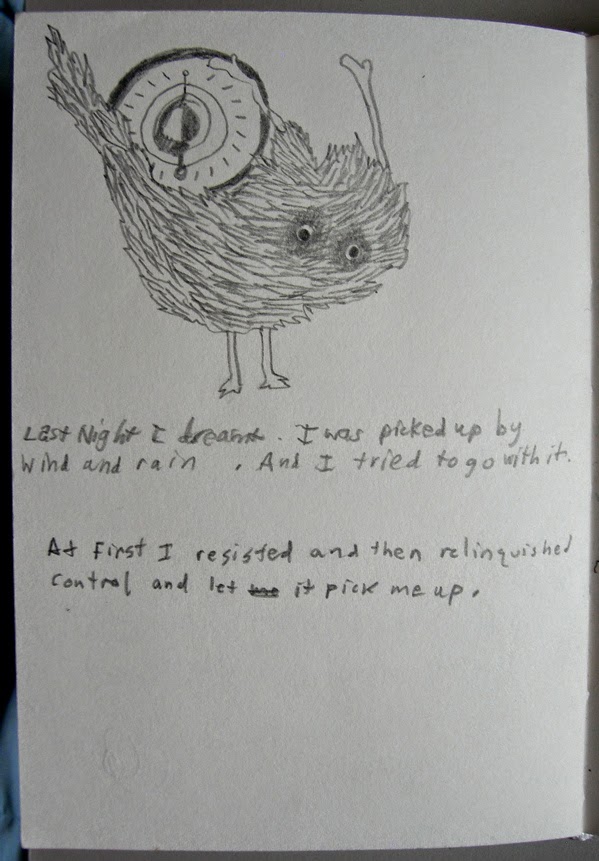 Last Night I dreamt. I was picked up by
wind and rain . And I tried to go with it.
At first I resisted and then relinquished
control and let me it pick me up.